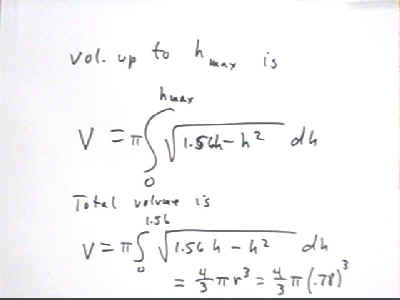 vol. up to h_max is
V = π∫₀^hmax √(1.56h - h²) dh
Total volume is
V = π∫₀^1.56 √(1.56h - h²) dh
= 4/3 πr³ = 4/3 π(.78)³